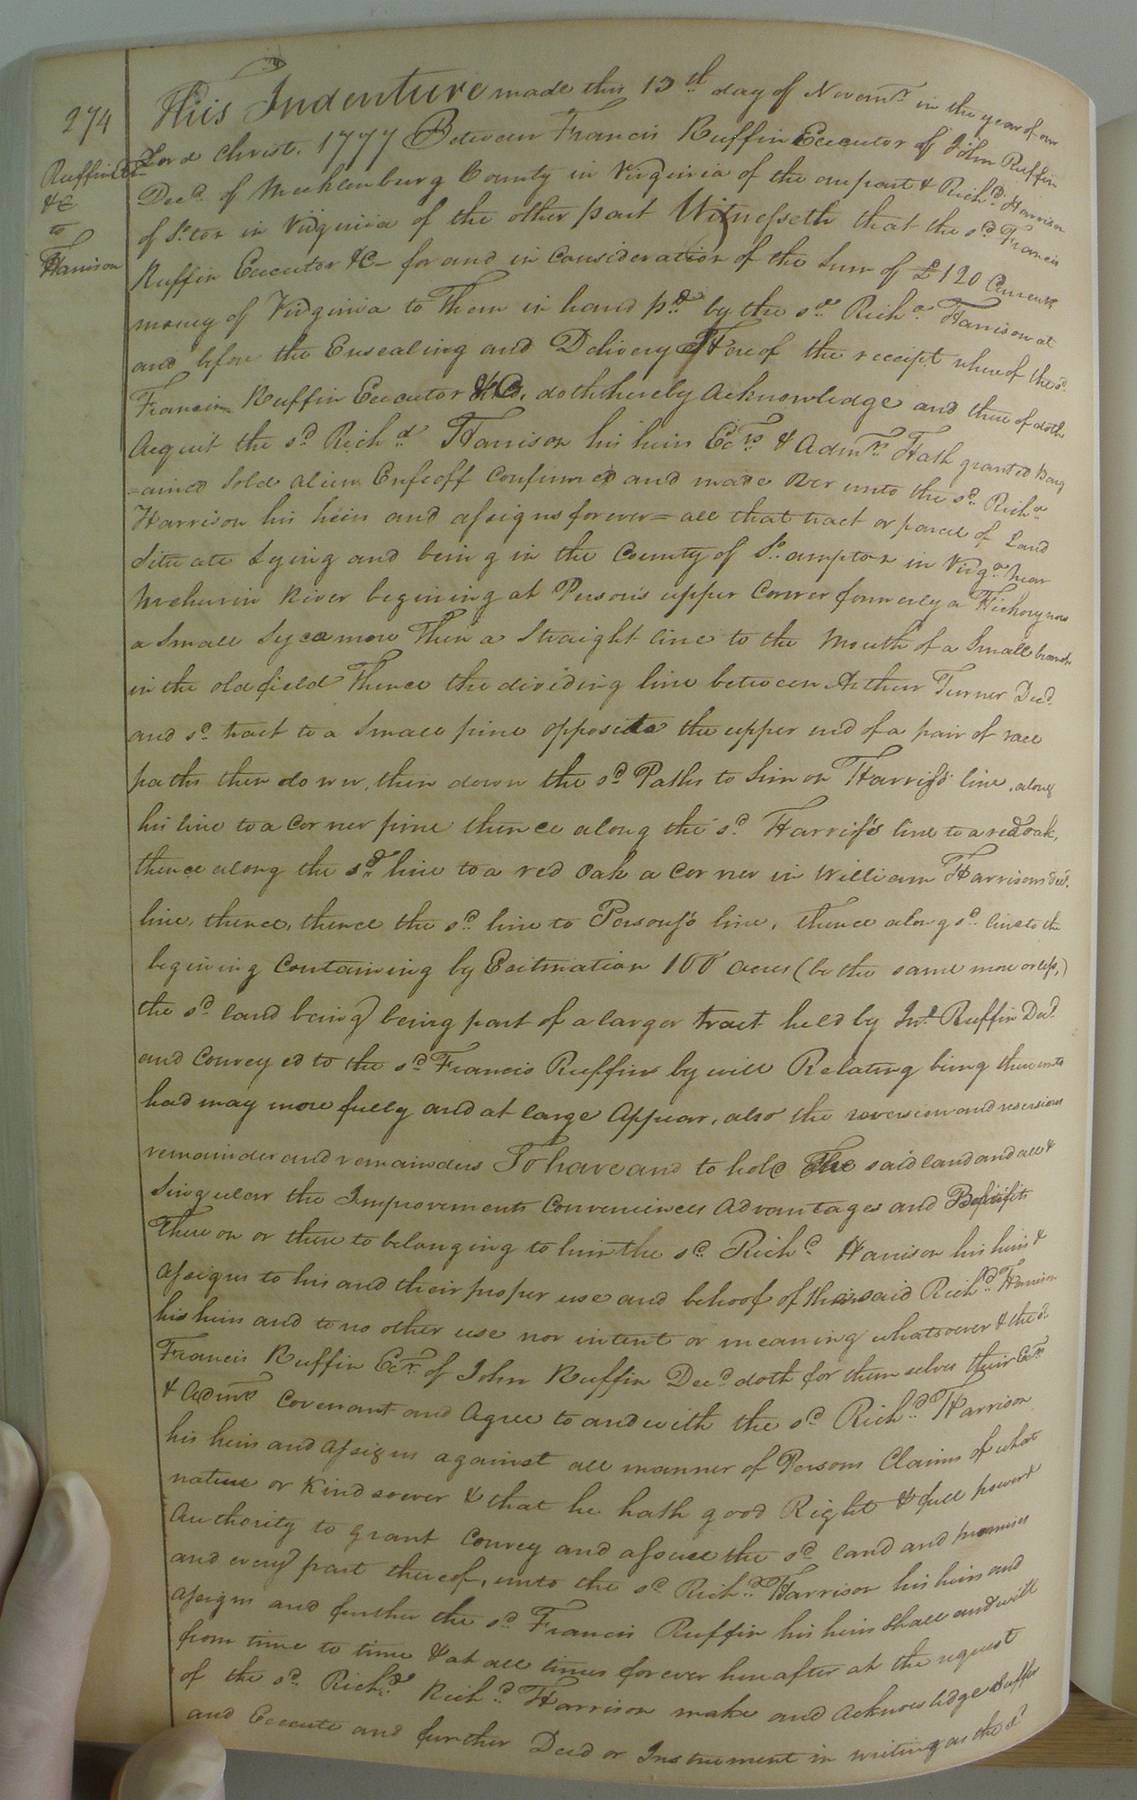 274
Ruffin Exr
&C
to
Harrison
This Indenture made this 13th day of Novemr in the year of our
Lord Christ. 1777 Between Francis Ruffin Executor of John Ruffin
Decd. of Mecklenburg County in Virginia of the one part & Richd. Harrison
of S:ton in Virginia of the other part Witnesseth that the sd. Francis
Ruffin Executor &C for and in consideration of the Sum of £120 Current
money of Virdginia to Them in hand pd by the sd Richd. Harrison at
and before the Ensealing and Delivery Hereof the receipt whereof the sd.
Francis Ruffin Executor &C. doth hereby acknowledge and thereof doth
Acquit the sd Richd Harrison his heirs Ecrs & Admrs Hath granted Barg
=ained Sold alien Enfeoff confirmed and made over unto the sd Richd
Harrison his heirs and assigns forever = all that tract or parcel of Land
Situate Lying and being in the County of So.ampton in Virga. near
Meherrin River begining at Person's upper corner formerly a Hickory now
a Small Sycamore Then a Straight line to the Mouth of a Small branch
in the old field Thence the dividing line between Arthur Turner Decd.
and sd. tract to a Small pine opposite the upper end of a pair of race
paths then down, then down the sd Paths to Simon Harriss's line, along
his line to a corner pine thence along the sd Harriss's line to a red oak,
thence along the sd. line to a red oak a corner in William Harrisons decd.
line, thence, thence the sd line to Persons's line, thence along sd. line to the
begining Containing by Esitmation 100 acres (be the same more or less,)
the sd land being) being part of a larger tract held by Jno. Ruffin Decd.
and Conveyed to the sd Francis Ruffin by will Relating being thereunto
had may more fully and at large Appear, also the reversion and reversions
remainder and remainders To have and to hold The said land and all &
Singular the Improvements Conveniences Advantages and Benifits
There on or there to belonging to him the sd Richd Harrison his heirs &
assigns to his and their proper use and behoof of the said Richd. Harrison
his heirs and to no other use nor intent or meaning whatsoever & the sd.
Francis Ruffin Ecr. of John Ruffin Decd doth for them selves their Ecrs
& Admrs covenant and Agree to and with the sd Richd. Harrison
his heirs and assigns against all manner of Persons Claims of what
nature or Kind soever & that he hath good Right & full power &
Authority to grant convey and assure the sd land and premises
and every part thereof, unto the sd Richd. Harrison his heirs and
assigns and further the sd Francis Ruffin his heirs shall and will
from time to time & at all times forever hereafter at the request
of the sd. Richd. Richd. Harrison make and Acknowledge Suffer
and Execute and further Deed or Instrument in writing as the sd